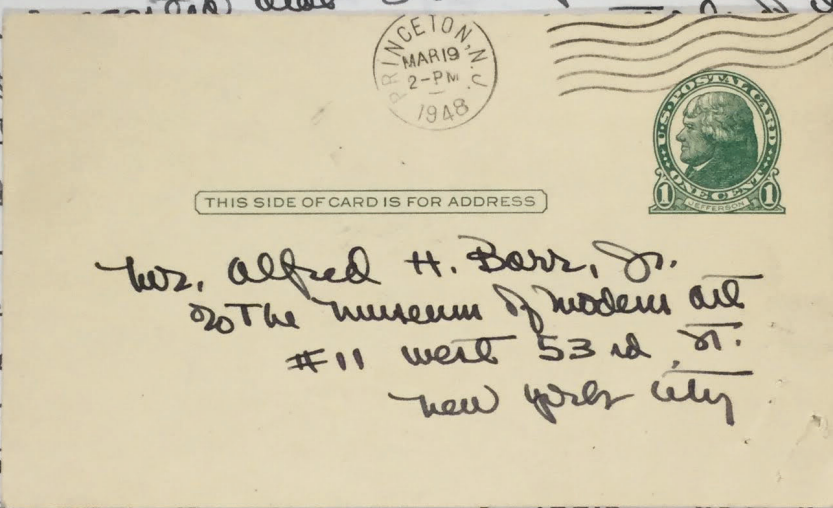 PRINCETON, N.J.
MAR 19
2-PM
1948
U.S. POSTAL CARD
ONE CENT
1 1
JEFFERSON
THIS SIDE OF CARD IS FOR ADDRESS
Mrs. Alfred H. Barr, Jr.
c/o The Museum of Modern Art
#11 West 53rd St.
New York City